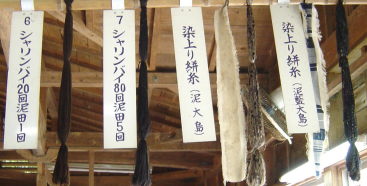 6 シャリンバイ20回泥田1回
7 シャリンバイ80回泥田5回
染上り絣糸(泥大島)
染上り絣糸(泥藍大島)